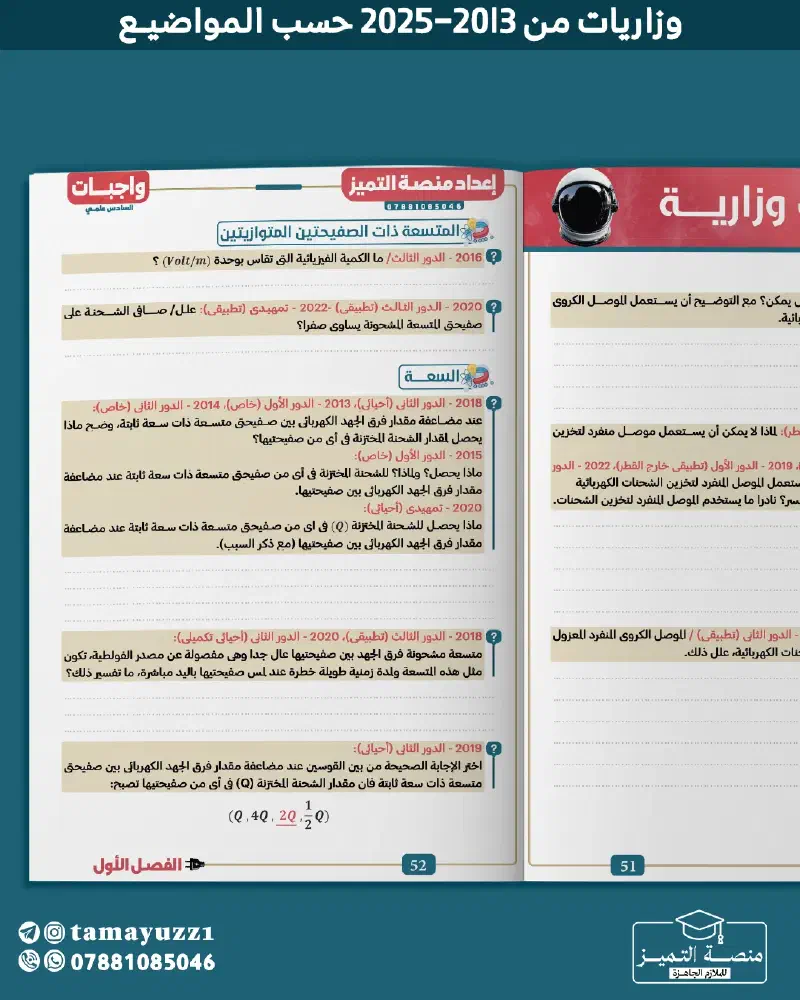 وزاريات من 2013-2025 حسب المواضيع
وزارية
يمكن؟ مع التوضيح أن يستعمل الموصل الكروي
لماذا لا يمكن أن يستعمل موصل منفرد لتخزين
2019 - الدور الأول (تطبيقي خارج القطر)، 2022 - الدور
ستعمل الموصل المنفرد لتخزين الشحنات الكهربائية
نادرا ما يستخدم الموصل المنفرد لتخزين الشحنات.
- الدور الثاني (تطبيقي) / الموصل الكروي المنفرد المعزول
الكهربائية، علل ذلك.
51
إعداد منصة التميز
07881085046
واجبات
السادس علمي
المتسعة ذات الصفيحتين المتوازيتين
2016 - الدور الثالث/ ما الكمية الفيزيائية التي تقاس بوحدة (Volt/m) ؟
2020 - الدور الثالث (تطبيقي) -2022 - تمهيدي (تطبيقي): علل/ صافي الشحنة على
صفيحتي المتسعة المشحونة يساوي صفرا؟
السعة
2018 - الدور الثاني (أحيائي)، 2013 - الدور الأول (خاص)، 2014 - الدور الثاني (خاص):
عند مضاعفة مقدار فرق الجهد الكهربائي بين صفيحتي متسعة ذات سعة ثابتة، وضح ماذا
يحصل لمقدار الشحنة المختزنة في أي من صفيحتيها؟
2015 - الدور الأول (خاص):
ماذا يحصل؟ ولماذا؟ للشحنة المختزنة في أي من صفيحتي متسعة ذات سعة ثابتة عند مضاعفة
مقدار فرق الجهد الكهربائي بين صفيحتيها.
2020 - تمهيدي (أحيائي):
ماذا يحصل للشحنة المختزنة (Q) في اي من صفيحتي متسعة ذات سعة ثابتة عند مضاعفة
مقدار فرق الجهد الكهربائي بين صفيحتيها (مع ذكر السبب).
2018 - الدور الثالث (تطبيقي)، 2020 - الدور الثاني (أحيائي تكميلي):
متسعة مشحونة فرق الجهد بين صفيحتيها عال جدا وهي مفصولة عن مصدر الفولطية، تكون
مثل هذه المتسعة ولمدة زمنية طويلة خطرة عند لمس صفيحتيها باليد مباشرة، ما تفسير ذلك؟
2019 - الدور الثاني (أحيائي):
اختر الإجابة الصحيحة من بين القوسين عند مضاعفة مقدار فرق الجهد الكهربائي بين صفيحتي
متسعة ذات سعة ثابتة فان مقدار الشحنة المختزنة (Q) في أي من صفيحتيها تصبح:
(Q , 4Q , 2Q , 1/2 Q)
52
الفصل الأول
tamayuzz1
07881085046
منصة التميز
للملازم الجاهزة